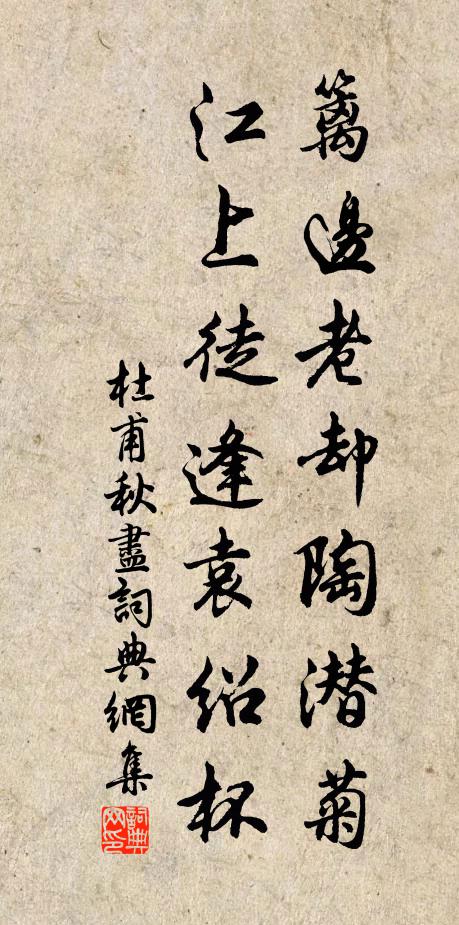 籬邊老却陶潜菊
江上徒逢袁紹杯
杜甫秋盡詞典網集
詞典网印